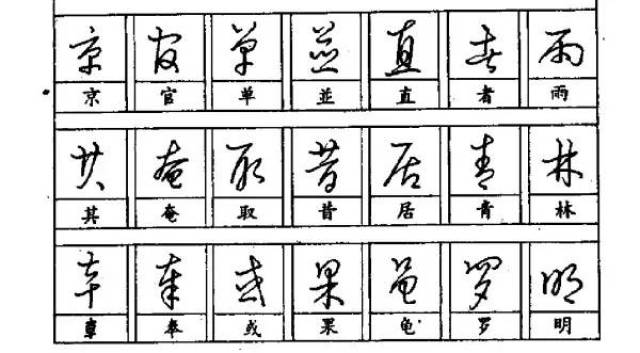 京 官 单 並 直 者 雨
京 官 单 並 直 者 雨
其 奄 取 昔 居 青 林
其 奄 取 昔 居 青 林
奉 或 果 龟 罗 明
奉 或 果 龟 罗 明